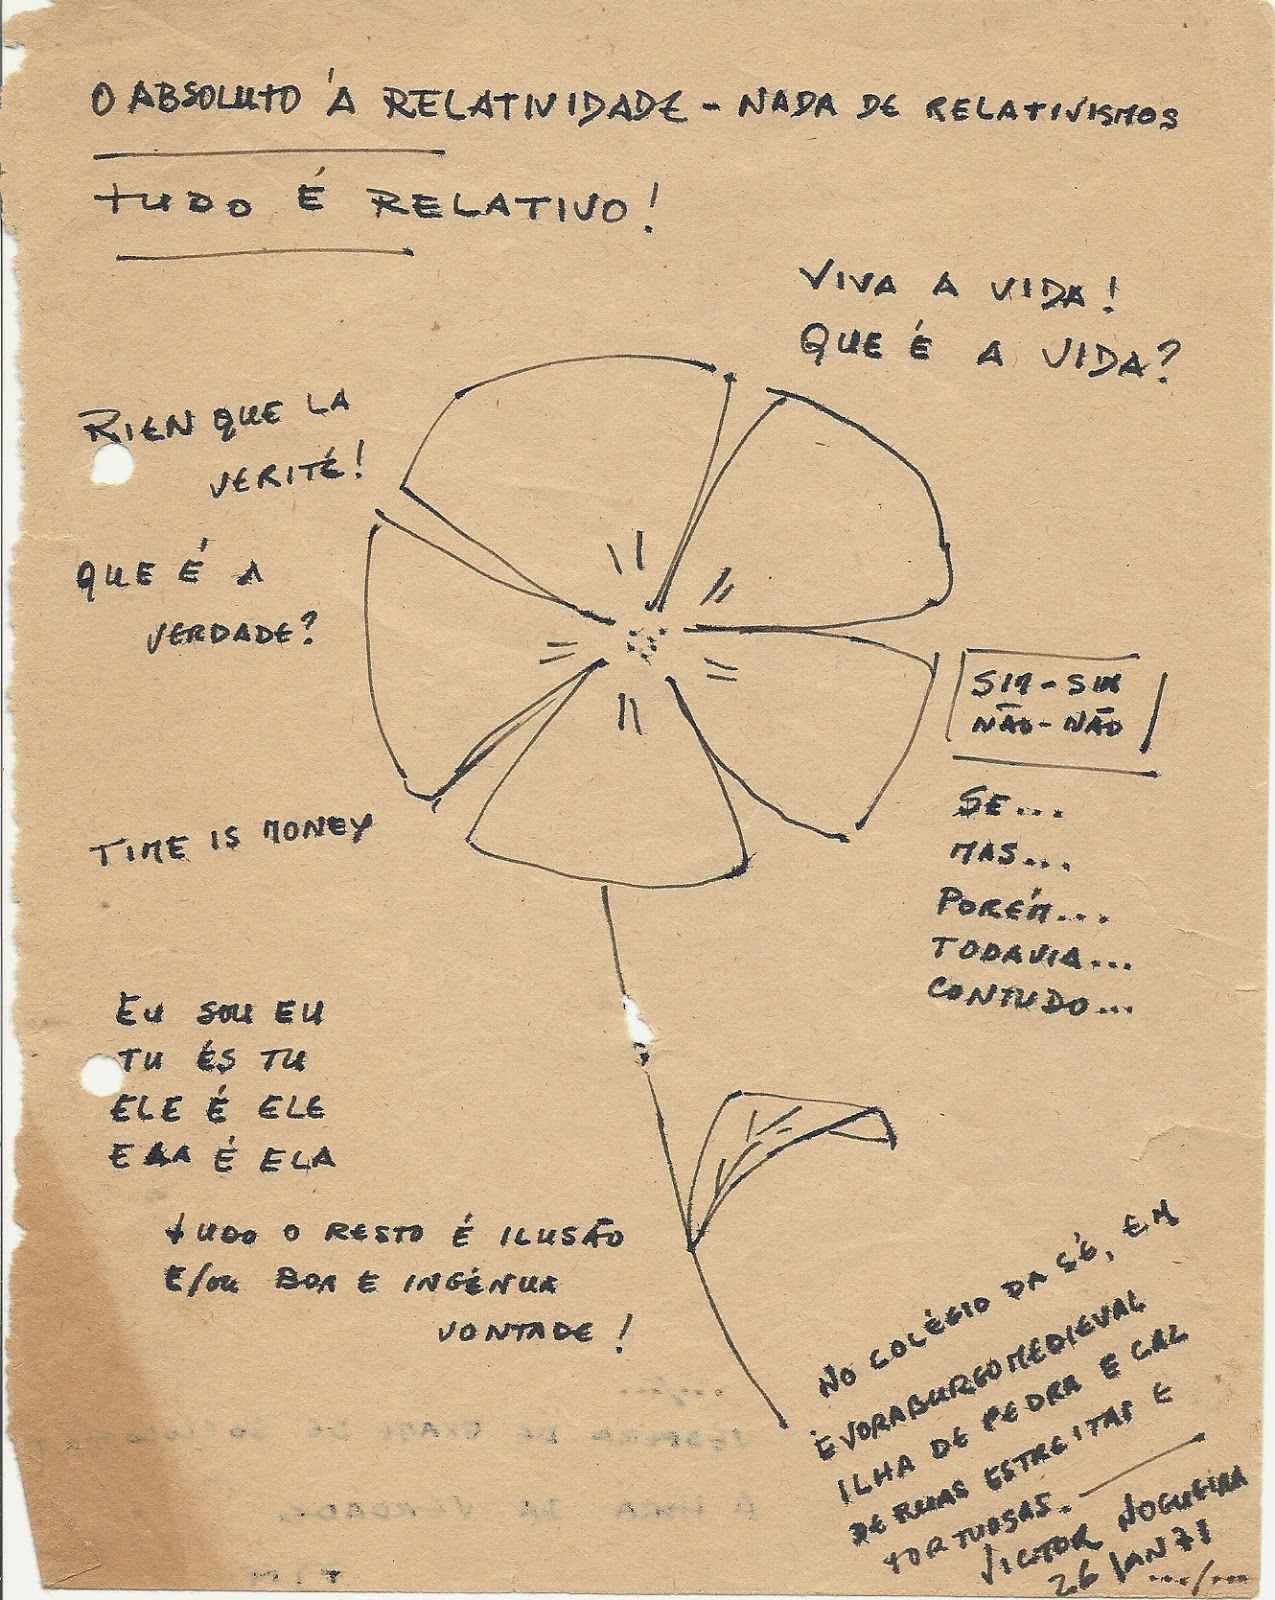 O ABSOLUTO 'A RELATIVIDADE - NADA DE RELATIVISMOS
TUDO É RELATIVO!
VIVA A VIDA!
QUE É A VIDA?
RIEN QUE LA
VERITÉ!
QUE É A
VERDADE?
SIM-SIM
NÃO-NÃO
SE...
MAS...
PORÉM...
TODAVIA...
CONTUDO...
TIME IS MONEY
EU SOU EU
TU ÉS TU
ELE É ELE
ELA É ELA
TUDO O RESTO É ILUSÃO
E/OU BOA E INGÉNUA
VONTADE!
NO COLÉGIO DA SÉ, EM
ÉVORABURGOMEDIEVAL
ILHA DE PEDRA E CAL
DE RUAS ESTREITAS E
TORTUOSAS. —
VICTOR NOGUEIRA
26 JAN 71
.../...